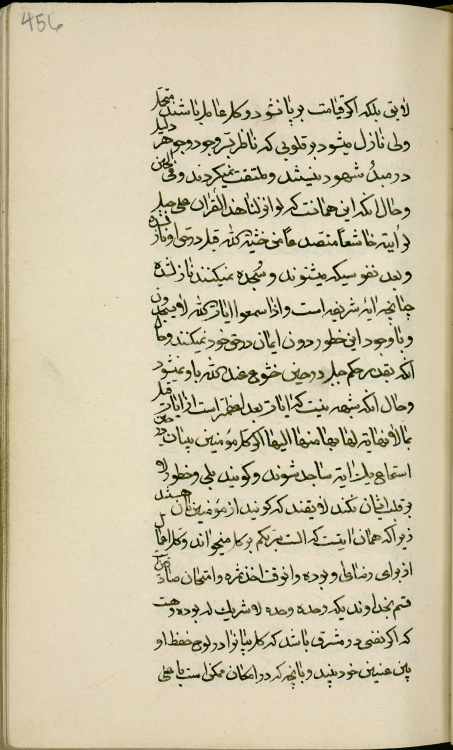 456
لایق بلکه اگر قیامت بر پا شود و کل عامل باشند متحمل
ولی نازل میشود بر قلوبی که ناظر بر وجود و جوهر دلیل
در مبدء شهود نیستند و ملتفت نمیگردند وفی الحین
و حال آنکه این همانست که لو انزلنا هذا القرآن علی جبل
لرأیته خاشعا متصدعا من خشیة الله قبل در حق او نازل شده
و بعد نفوسیکه میشنوند و سجده نمیکنند نازل شده
چنانچه آیه شریفه است و اذا سمعوا آیات الله لا یسجدون
و با وجود این خطور دون ایمان در حق خود نمیکنند و حال
آنکه بقدر حکم جبل در حین خشوع عند الله باو نمیشود
و حال آنکه شبهه نیست که آیات بعد اعظم تر است از آیات قبل
بما لا نهایة لها بها منها الیها اگر کل مؤمنین ببیان در حین
استماع یک آیه ساجد شوند و گویند بلی و خطور لا
بر قلب ایشان نکند لایقند که گویند از مؤمنین بآن هستند
زیرا که همان آیتیست که الست بربکم بر کل میخواند و کل اقبال
از برای رضای او بوده و انوقت اخذ ثمره و امتحان صادق
قسم بخداوندیکه وحده وحده لا شریک له بوده و هست
که اگر نفسی در مشرق باشد که کل بیانرا در لوح حفظ او
بین عینین خود بیند و بآنچه که در امکان ممکن است با علی